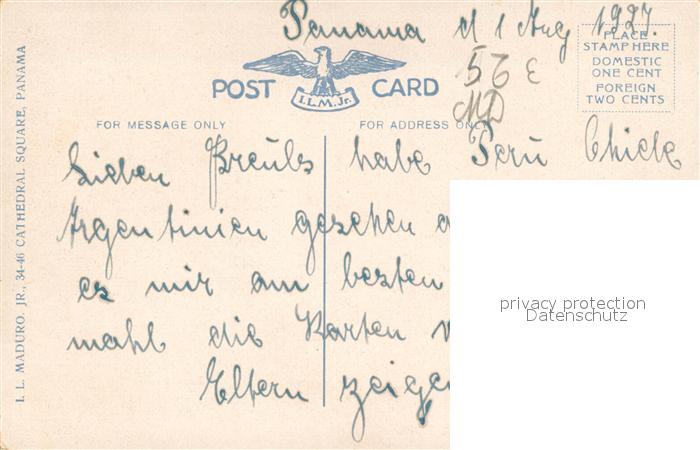 Panama d 1 Aug 1927.
PLACE
STAMP HERE
DOMESTIC
ONE CENT
FOREIGN
TWO CENTS
56 E
MD
POST CARD
I.L.M. Jr.
FOR MESSAGE ONLY
FOR ADDRESS ONLY
Lieben habe Peru Chiele
Argentinien gesehen
es mir am besten
mahl die Karten
Eltern zeigen
I. L. MADURO. JR., 34-46 CATHEDRAL SQUARE, PANAMA
privacy protection
Datenschutz